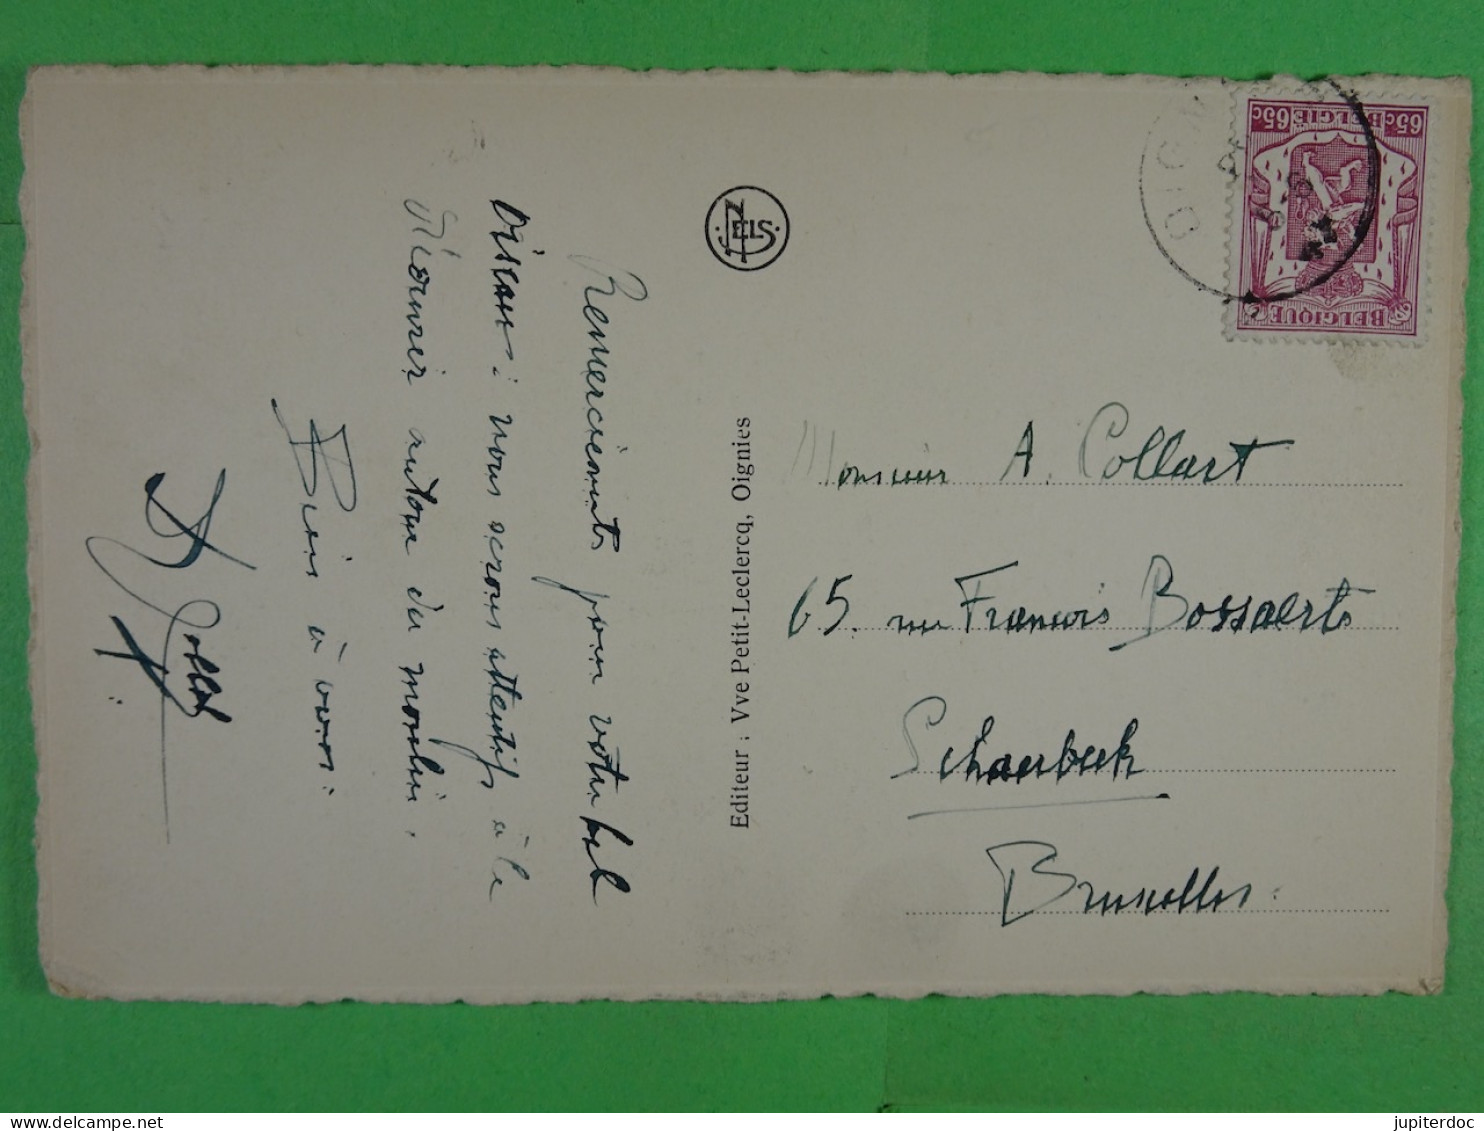 Remerciements pour votre bel
oiseau : nous serons attentifs à le
découvrir autour du moulin.
Bien à vous.
NELS
Editeur : Vve Petit-Leclercq, Oignies
65c BELGIË 65c
BELGIQUE
Monsieur A. Collart
65. rue François Bossaerts
Schaerbeek
Bruxelles.
jupiterdoc